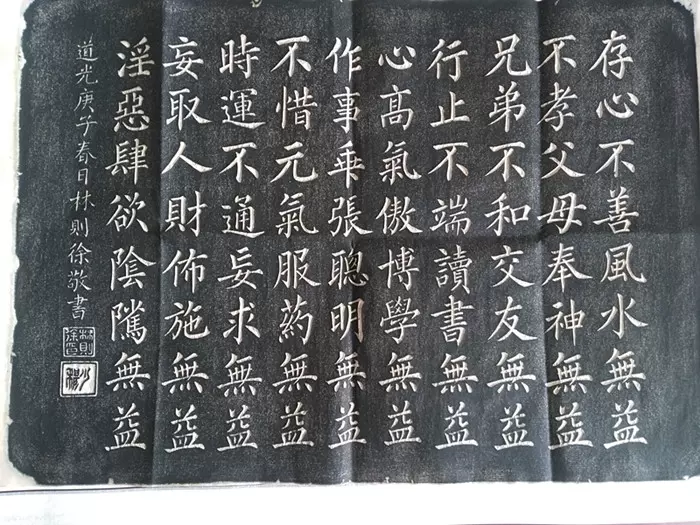 存心不善風水無益
不孝父母奉神無益
兄弟不和交友無益
行止不端讀書無益
心高氣傲博學無益
作事乖張聰明無益
不惜元氣服药無益
時運不通妄求無益
妄取人財佈施無益
淫惡肆欲陰隲無益
道光庚子春日林則徐敬書
林則徐印
少穆